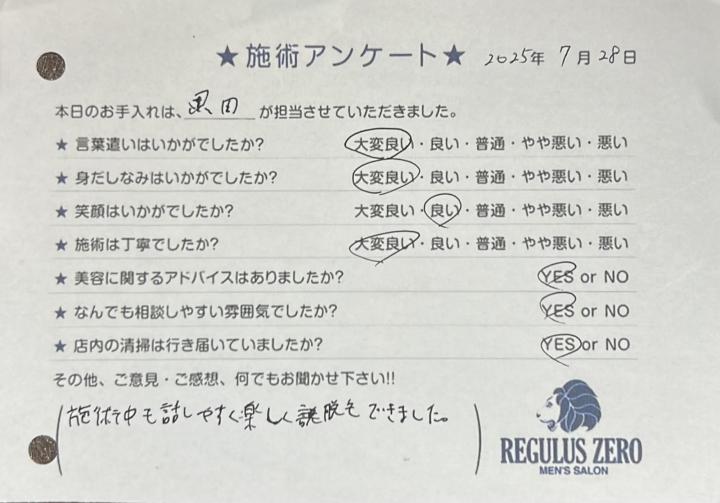 ★施術アンケート★ 2025年7月28日
本日のお手入れは、黒田が担当させていただきました。
★ 言葉遣いはいかがでしたか? 大変良い・良い・普通・やや悪い・悪い
★ 身だしなみはいかがでしたか? 大変良い・良い・普通・やや悪い・悪い
★ 笑顔はいかがでしたか? 大変良い・良い・普通・やや悪い・悪い
★ 施術は丁寧でしたか? 大変良い・良い・普通・やや悪い・悪い
★ 美容に関するアドバイスはありましたか? YES or NO
★ なんでも相談しやすい雰囲気でしたか? YES or NO
★ 店内の清掃は行き届いていましたか? YES or NO
その他、ご意見・ご感想、何でもお聞かせ下さい!!
施術中も話しやすく楽しく脱毛できました。
REGULUS ZERO
MEN'S SALON